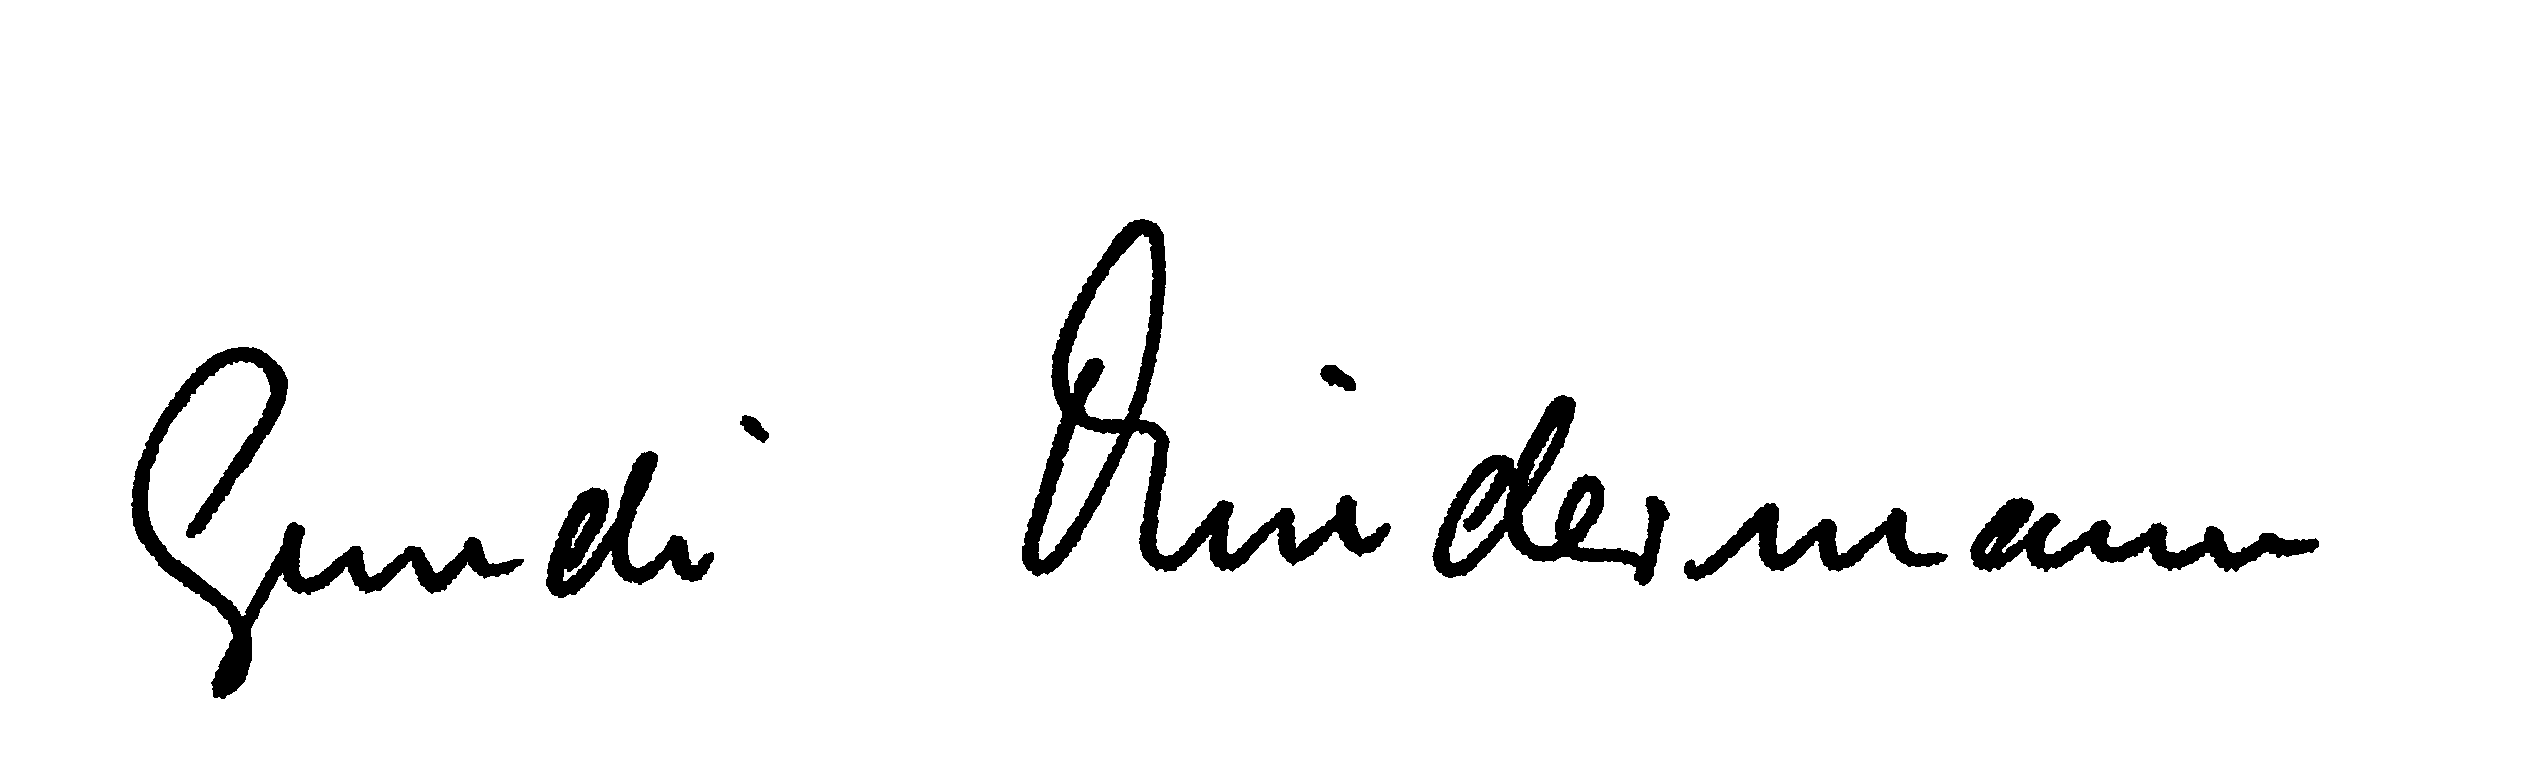 Gundi Kindermann